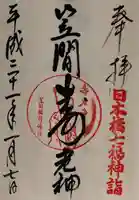 奉拝
日本橋七福神詣
笠間寿老神
平成三十一年一月七日